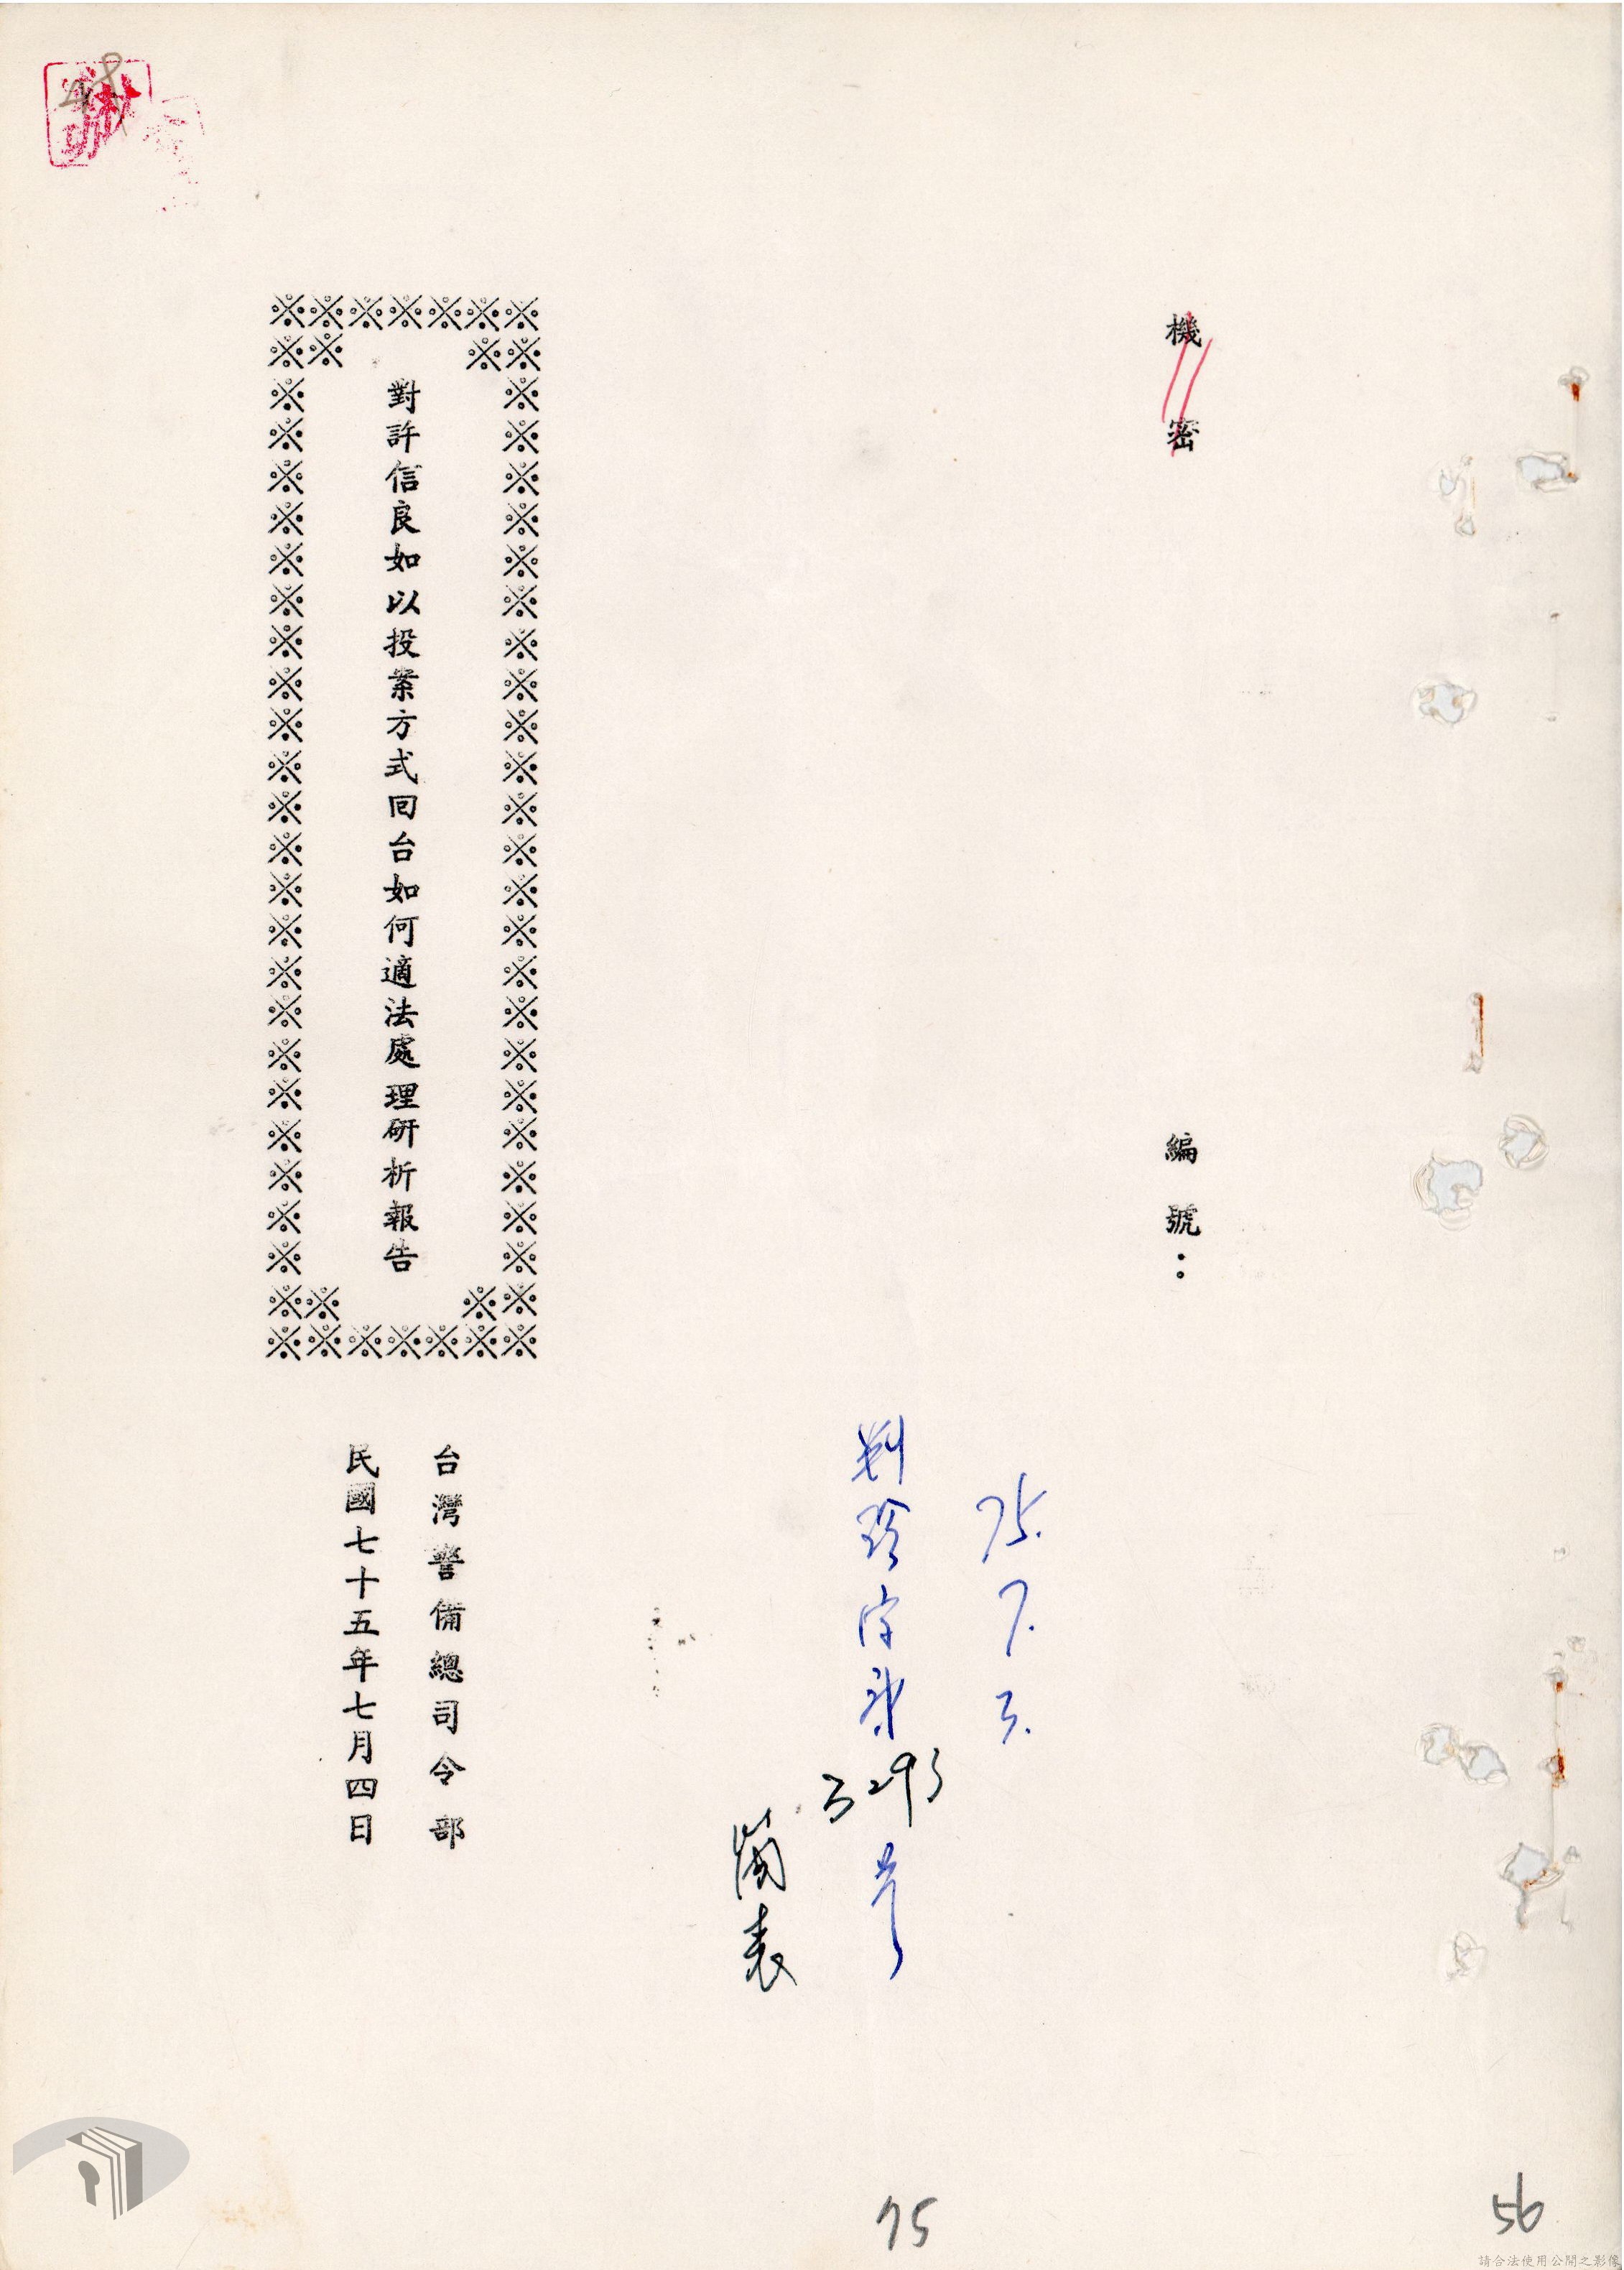 機密
編號：
75.7.3.
判珍字第3293号
備表
台灣警備總司令部
對許信良如以投案方式回台如何適法處理研析報告
民國七十五年七月四日
48
75
56
請合法使用公開之影像